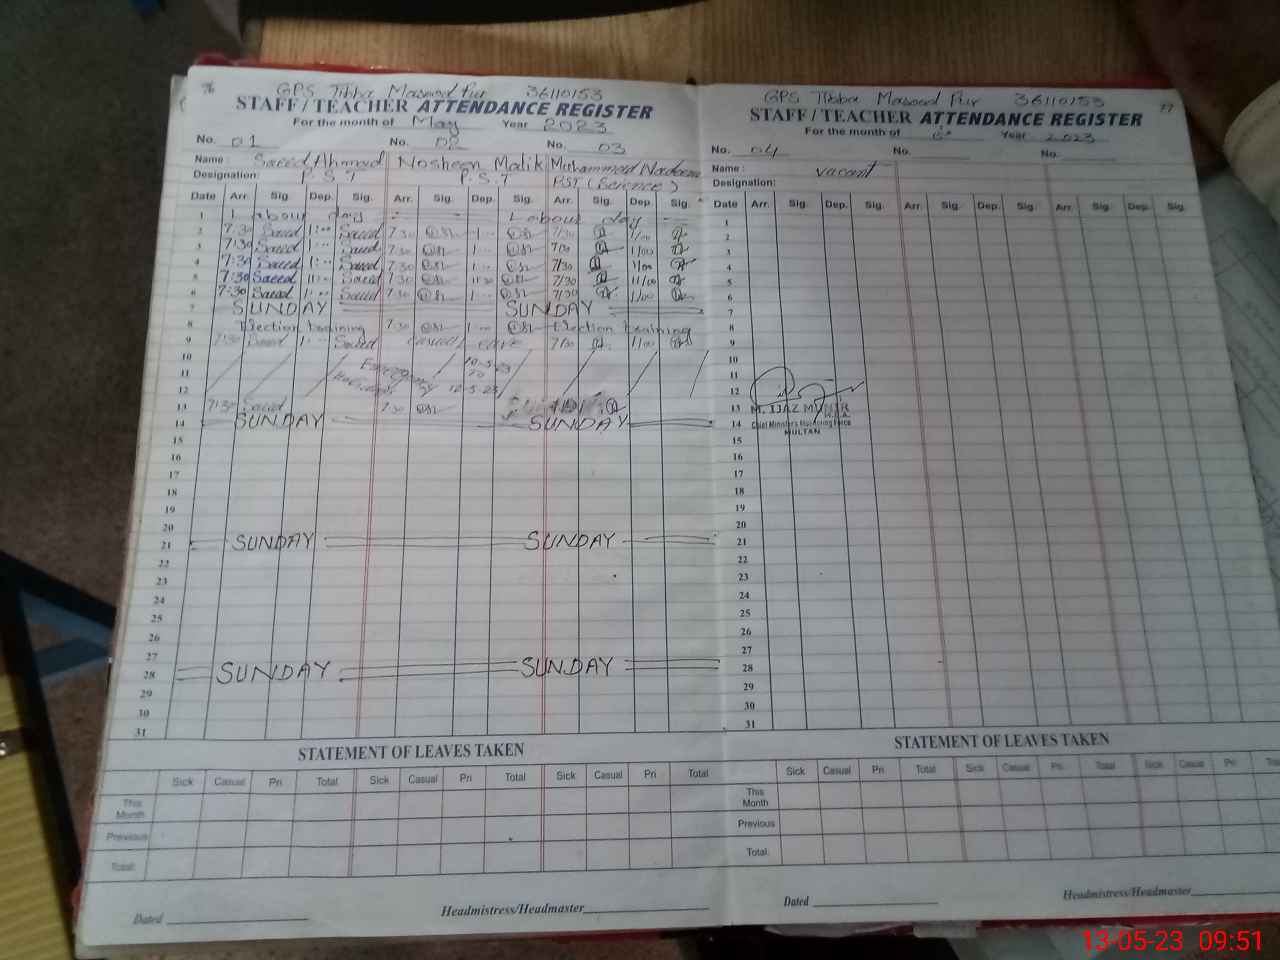 76
GPS Tibba Masood Pur 36110153
STAFF/TEACHER ATTENDANCE REGISTER
For the month of May Year 2023
No. 01 No. 02 No. 03
Name : Saeed Ahmad Nosheen Malik Muhammad Nadeem
Designation: P.S.T P.S.T PST (Science)
Date Arr. Sig. Dep. Sig. Arr. Sig. Dep. Sig. Arr. Sig. Dep. Sig.
1 Labour day Labour day
2 7:30 Saeed 1:00 Saeed 7:30 1:00 7/30 1/00
3 7:30 Saeed 1:00 Saeed 7:30 1:00 7/30 1/00
4 7:30 Saeed 1:00 Saeed 7:30 1:00 7/30 1/00
5 7:30 Saeed 11:00 Saeed 7:30 11:30 7/30 11/00
6 7:30 Saeed 1:00 Saeed 7:30 1:00 7/30 1/00
7 SUNDAY SUNDAY
8 Election training 7:30 1:00 Election training
9 7:30 Saeed 1:00 Saeed Casual leave 7/30 1/00
10 10-5-23
11 Emergency TO
12 Holidays 12-5-23
13 7:30 Saeed 7:30
14 SUNDAY SUNDAY
15
16
17
18
19
20
21 SUNDAY SUNDAY
22
23
24
25
26
27
28 SUNDAY SUNDAY
29
30
31
STATEMENT OF LEAVES TAKEN
Sick Casual Pri Total Sick Casual Pri Total Sick Casual Pri Total
This Month
Previous
Total:
Dated Headmistress/Headmaster
77
GPS Tibba Masood Pur 36110153
STAFF/TEACHER ATTENDANCE REGISTER
For the month of Year 2023
No. 04 No. No.
Name : vacant
Designation:
Date Arr. Sig. Dep. Sig. Arr. Sig. Dep. Sig. Arr. Sig. Dep. Sig.
1
2
3
4
5
6
7
8
9
10
11
12
13 M. IJAZ MUNIR
14 Chief Minister's Monitoring Force
MULTAN
15
16
17
18
19
20
21
22
23
24
25
26
27
28
29
30
31
STATEMENT OF LEAVES TAKEN
Sick Casual Pri Total Sick Casual Pri Total Sick Casual Pri
This Month
Previous
Total:
Dated Headmistress/Headmaster
13-05-23 09:51